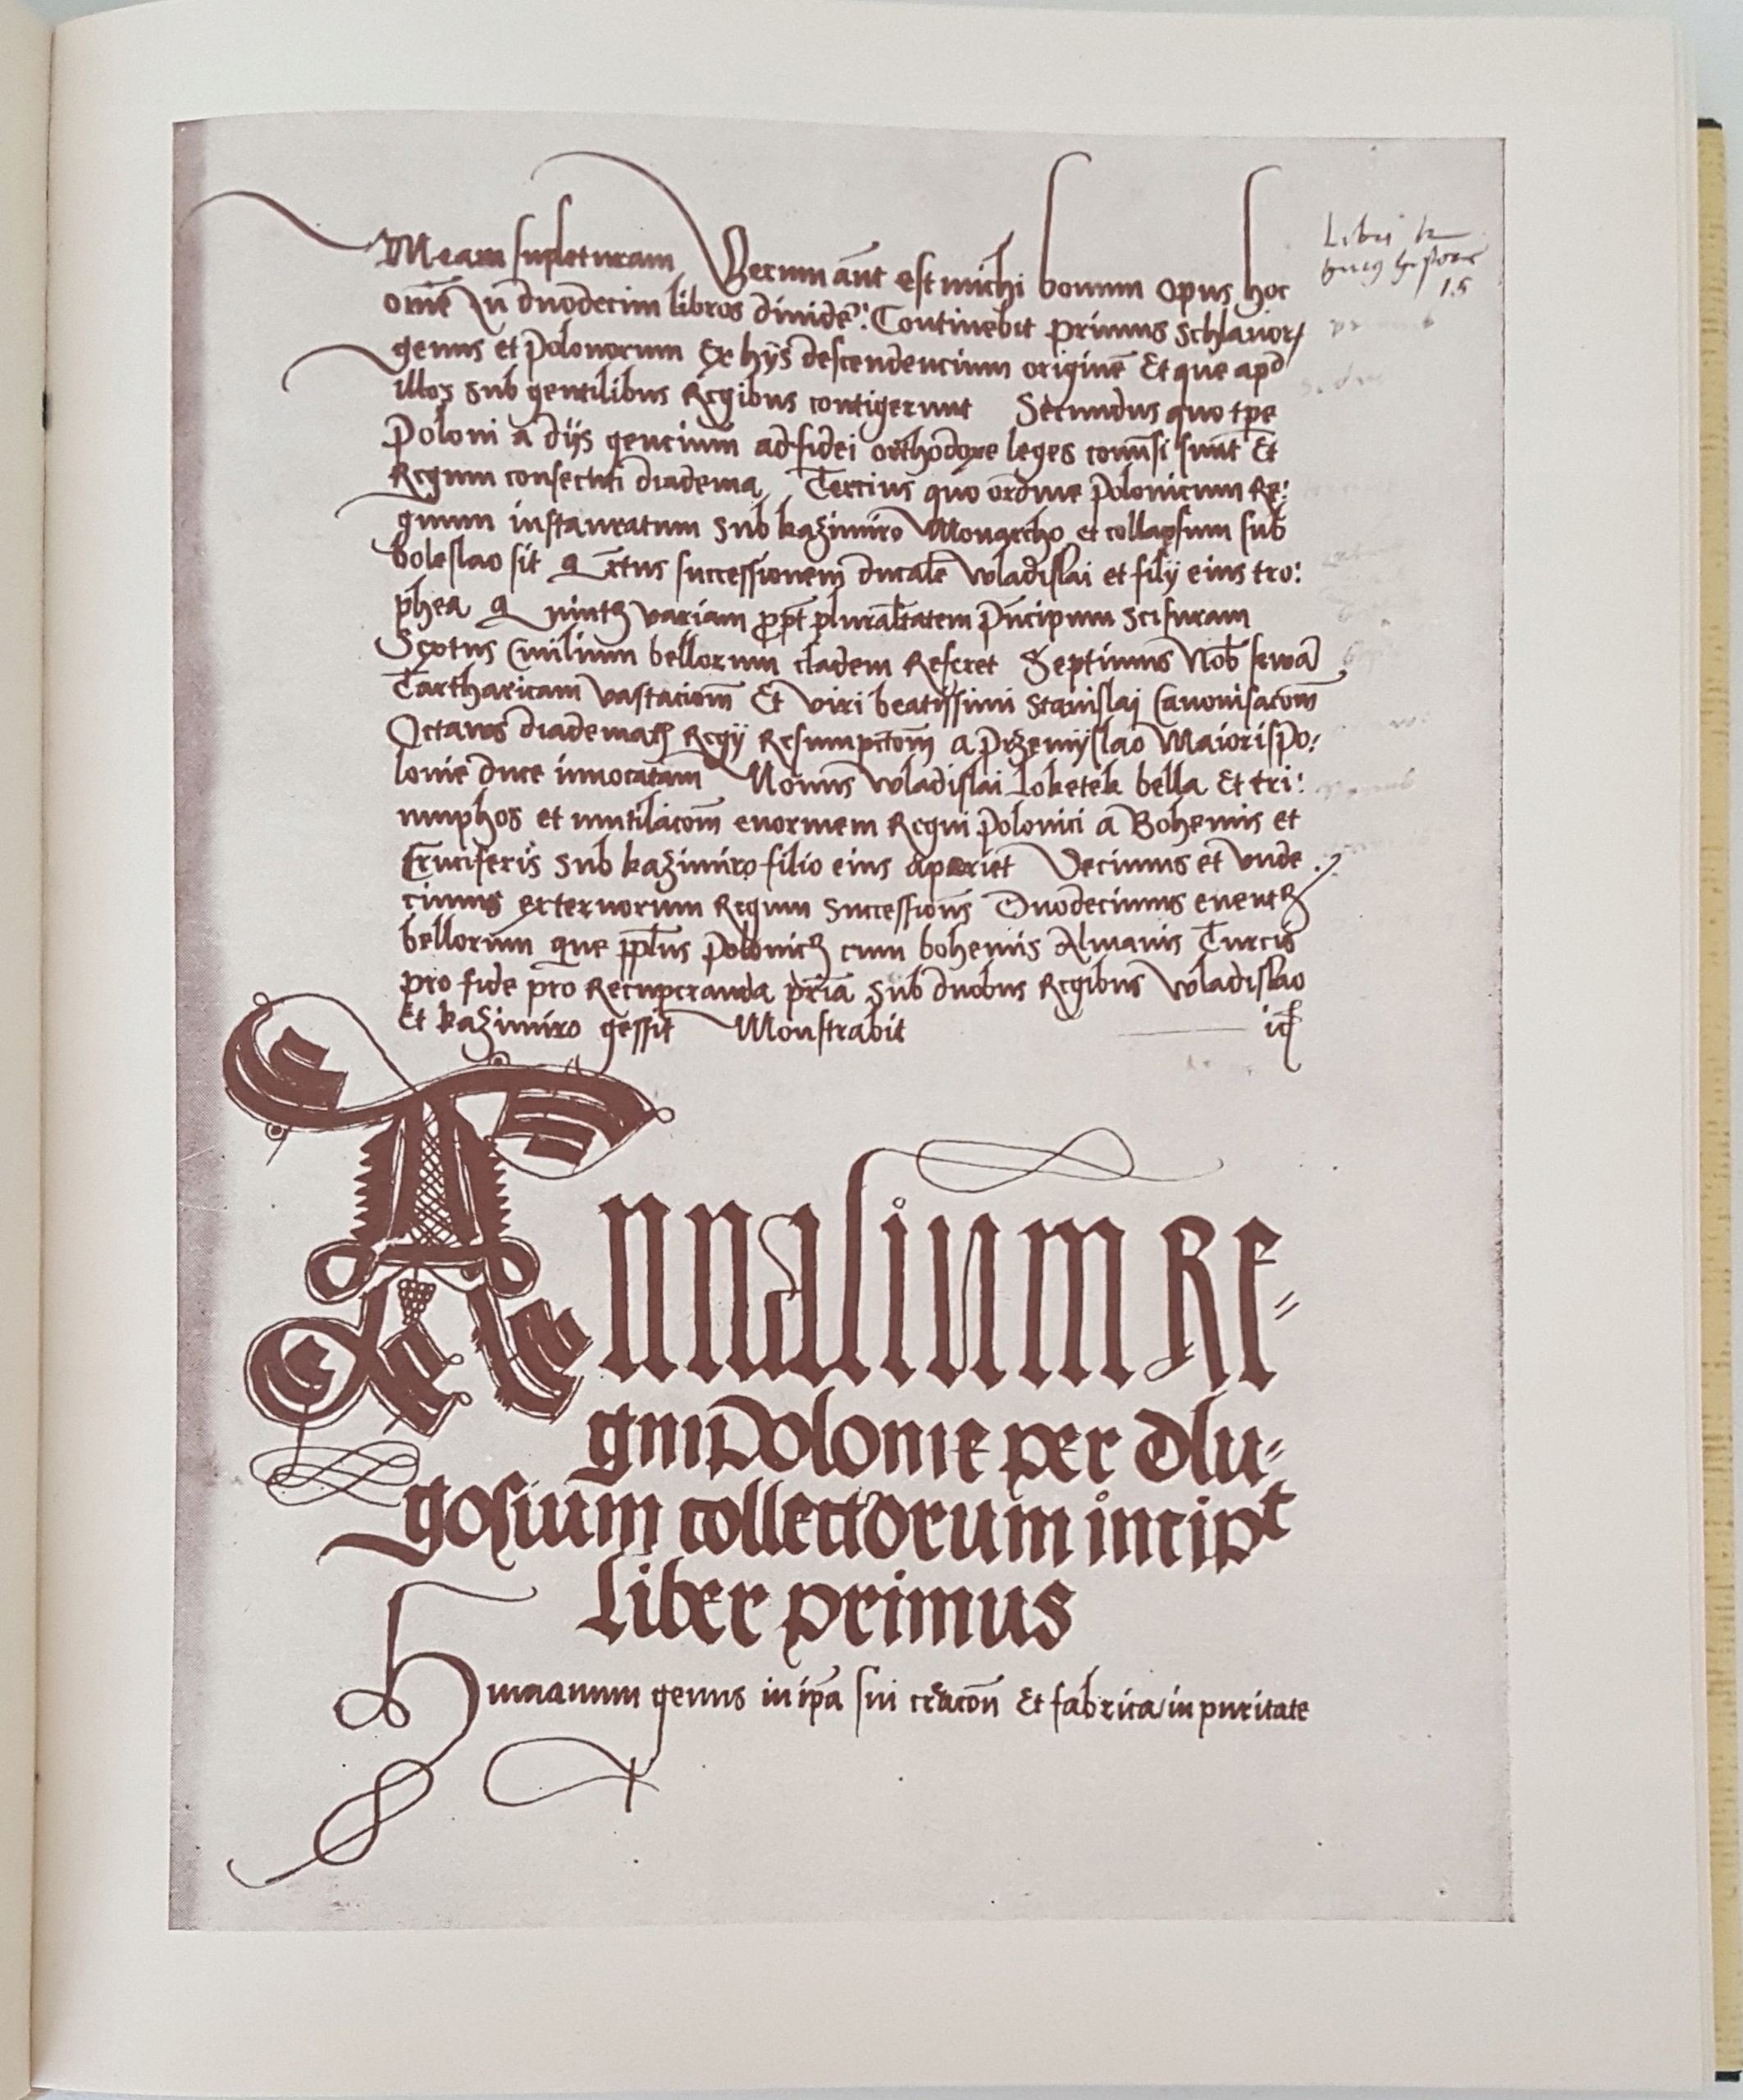 Meam supleturam Verum aūt est michi bonum opus hoc
omē In duodecim libros dividē: Continebit primus Schlavor
genus et polonorum Ex hijs descendencium originē Et que apd
illos sub gentilibus Regibus contigerunt Secundus quo tpe
Poloni a dijs gencium ad fidei orthodoxe leges cōmsi sunt Et
Regum consecuti diadema Tercius quo ordine polonicum Re:
gnum instauratum sub kazimiro Monarcho et collapsum sub
boleslao sit Qrtus successionem ducalē wladislai et filij eius tro:
phea Quintꝰ variam ꝓpt pluralitatem pn̄cipum scisuram
Sextus Civilium bellorum cladem Referet Septimus Nob
Tartharicam vastaciōm Et viri beatissimi Stanislaj Canonisacōm
Octavus Regij Resumpciōm a przemijslao Maioris po:
lonie duce Nonus wladislai loketek bella Et tri:
umphos et mutilacōm enormem Regni polonici a Bohemis et
Cruciferis Sub kazimiro filio eius aperiet Decimus et vnde
cimus externorum Regum Successiōns Duodecimus eventꝰ
bellorum que pplus polonicꝰ cum bohemis Almanis Turcis
pro fide pro Recuperanda pr̄ia Sub duobus Regibus wladislao
Et kazimiro gessit Monstrabit
Libri
15
Annalium Re=
gni Polonie per dlu=
gosium collectorum incipt
Liber primus
Humanum genus in ipā sui creacōn Et fabrica/in puritate